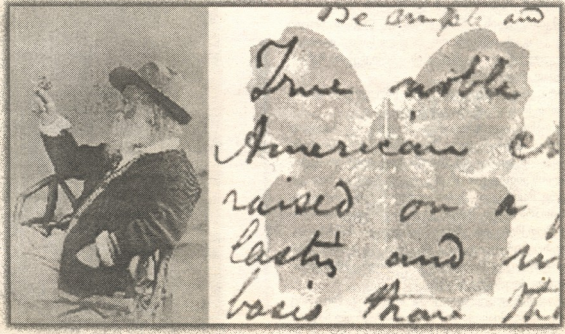 Be simple and
True noble
American
raised on a
lasting and
basis than